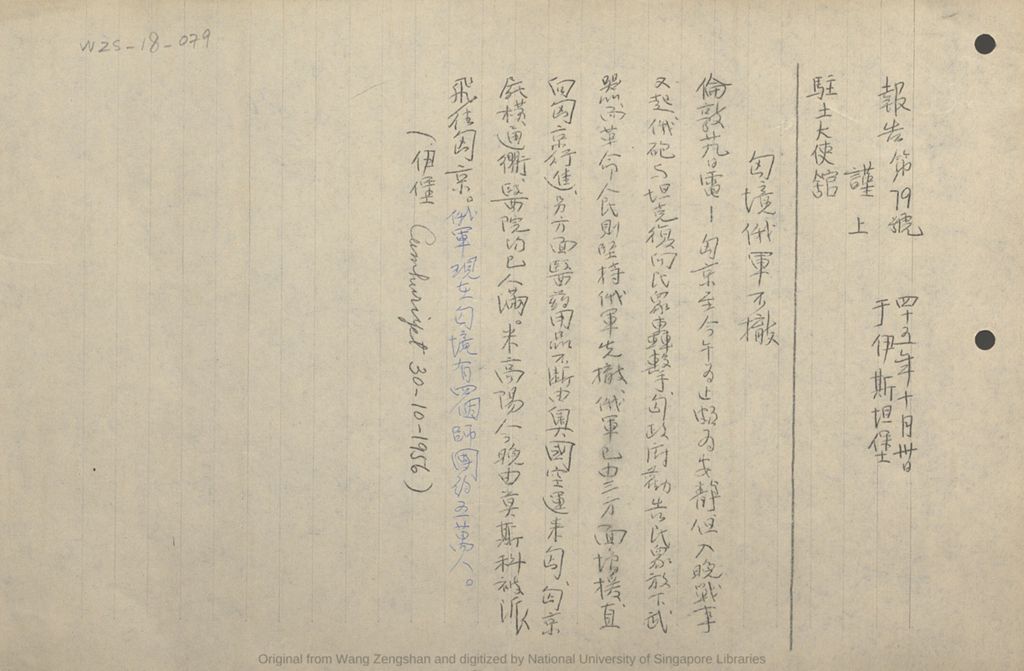 WZS-18-079
報告第79號 四十五年十月卅日
謹上 于伊斯坦堡
駐土大使舘
匈境俄軍不撤
倫敦廿九日電—匈京至今午為止頗為安靜但入晚戰事
又起俄砲与坦克復向民眾轟擊匈政府勸告民眾放下武
器而革命人民則堅持俄軍先撤俄軍已由三方面增援直
向匈京行進、另方面醫葯用品不斷由奧國空運來匈匈京
屍橫通衢、醫院均已人滿。米高陽今晚由莫斯科被派
飛往匈京。俄軍現在匈境有四個師團約五萬人。
(伊堡 Cumhuriyet 30-10-1956)
Original from Wang Zengshan and digitized by National University of Singapore Libraries